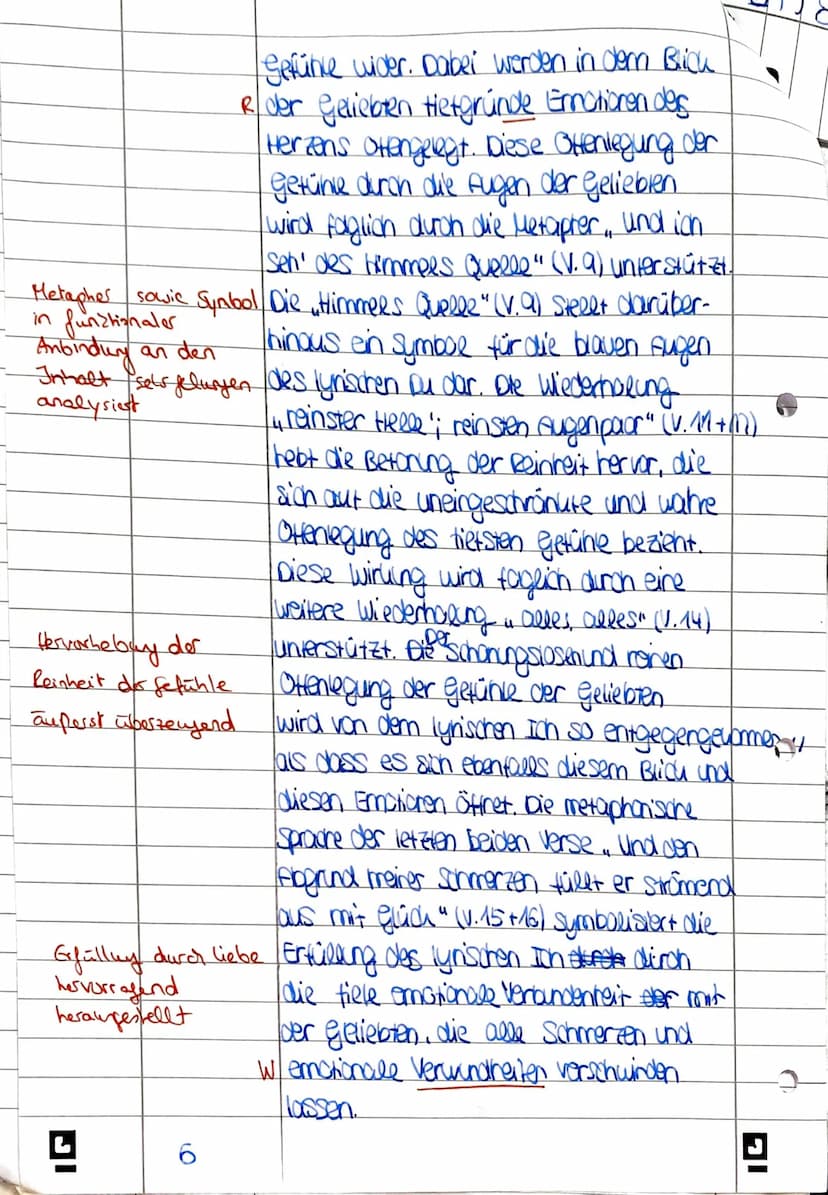 Gefühle wider. Dabei werden in dem Blick
R der Geliebten tiefgründe Emotionen des
Herzens offengelegt. Diese Offenlegung der
Gefühle durch die Augen der Geliebten
wird folglich durch die Metapher „und ich
seh' des Himmels Quelle" (V.9) unterstützt.
Metapher sowie Symbol Die „Himmels Quelle" (V.9) stellt darüber-
in funktionaler
hinaus ein Symbol für die blauen Augen
Anbindung an den
Inhalt sehr gelungen des lyrischen Du dar. Die Wiederholung
analysiert
„reinster Helle"; reinsten Augenpaar" (V.11+12)
hebt die Betonung der Reinheit hervor, die
sich auf die uneingeschränkte und wahre
Offenlegung des tiefsten Gefühle bezieht.
Diese Wirkung wird folglich durch eine
weitere Wiederholung „alles, alles" (V.14)
Hervorhebung der unterstützt. Die Der Schonungslosen und reinen
Reinheit der Gefühle Offenlegung der Gefühle der Geliebten
äußerst überzeugend wird von dem lyrischen Ich so entgegengekommen,
als dass es sich ebenfalls diesem Blick und
diesen Emotionen öffnet. Die metaphorische
Sprache der letzten beiden Verse „Und den
Abgrund meiner Schmerzen füllt er strömend
aus mit Glück" (V.15+16) symbolisiert die
Erfüllung durch Liebe Erfüllung des lyrischen Ich durch
hervorragend die tiefe emotionale Verbundenheit der mit
herausgestellt
der Geliebten, die alle Schmerzen und
W emotionale Verwundheiten verschwinden
lassen.
6